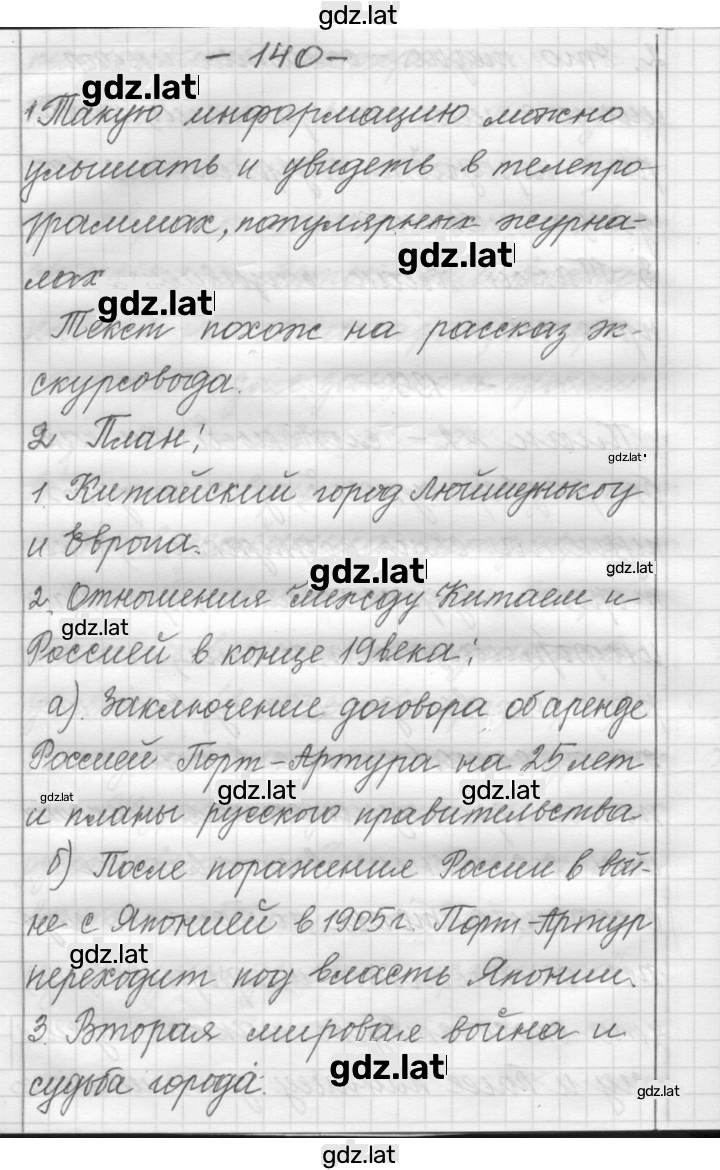 gdz.lat
- 140 -
gdz.lat
1 Такую информацию можно
улышать и увидеть в телепро-
граммах, популярных журна-
gdz.lat
лах
gdz.lat
Текст похож на рассказ эк-
скурсовода.
2 План:
gdz.lat
1 Китайский город Люйшунькоу
и Европа.
gdz.lat
gdz.lat
2. Отношения между Китаем и
gdz.lat
Россией в конце 19 века:
а). Заключение договора об аренде
Россией Порт-Артура на 25 лет
gdz.lat
gdz.lat
gdz.lat
и планы русского правительства
б) После поражения России в вой-
не с Японией в 1905 г. Порт-Артур
gdz.lat
переходит под власть Японии.
3. Вторая мировая война и
судьба города.
gdz.lat
gdz.lat
gdz.lat